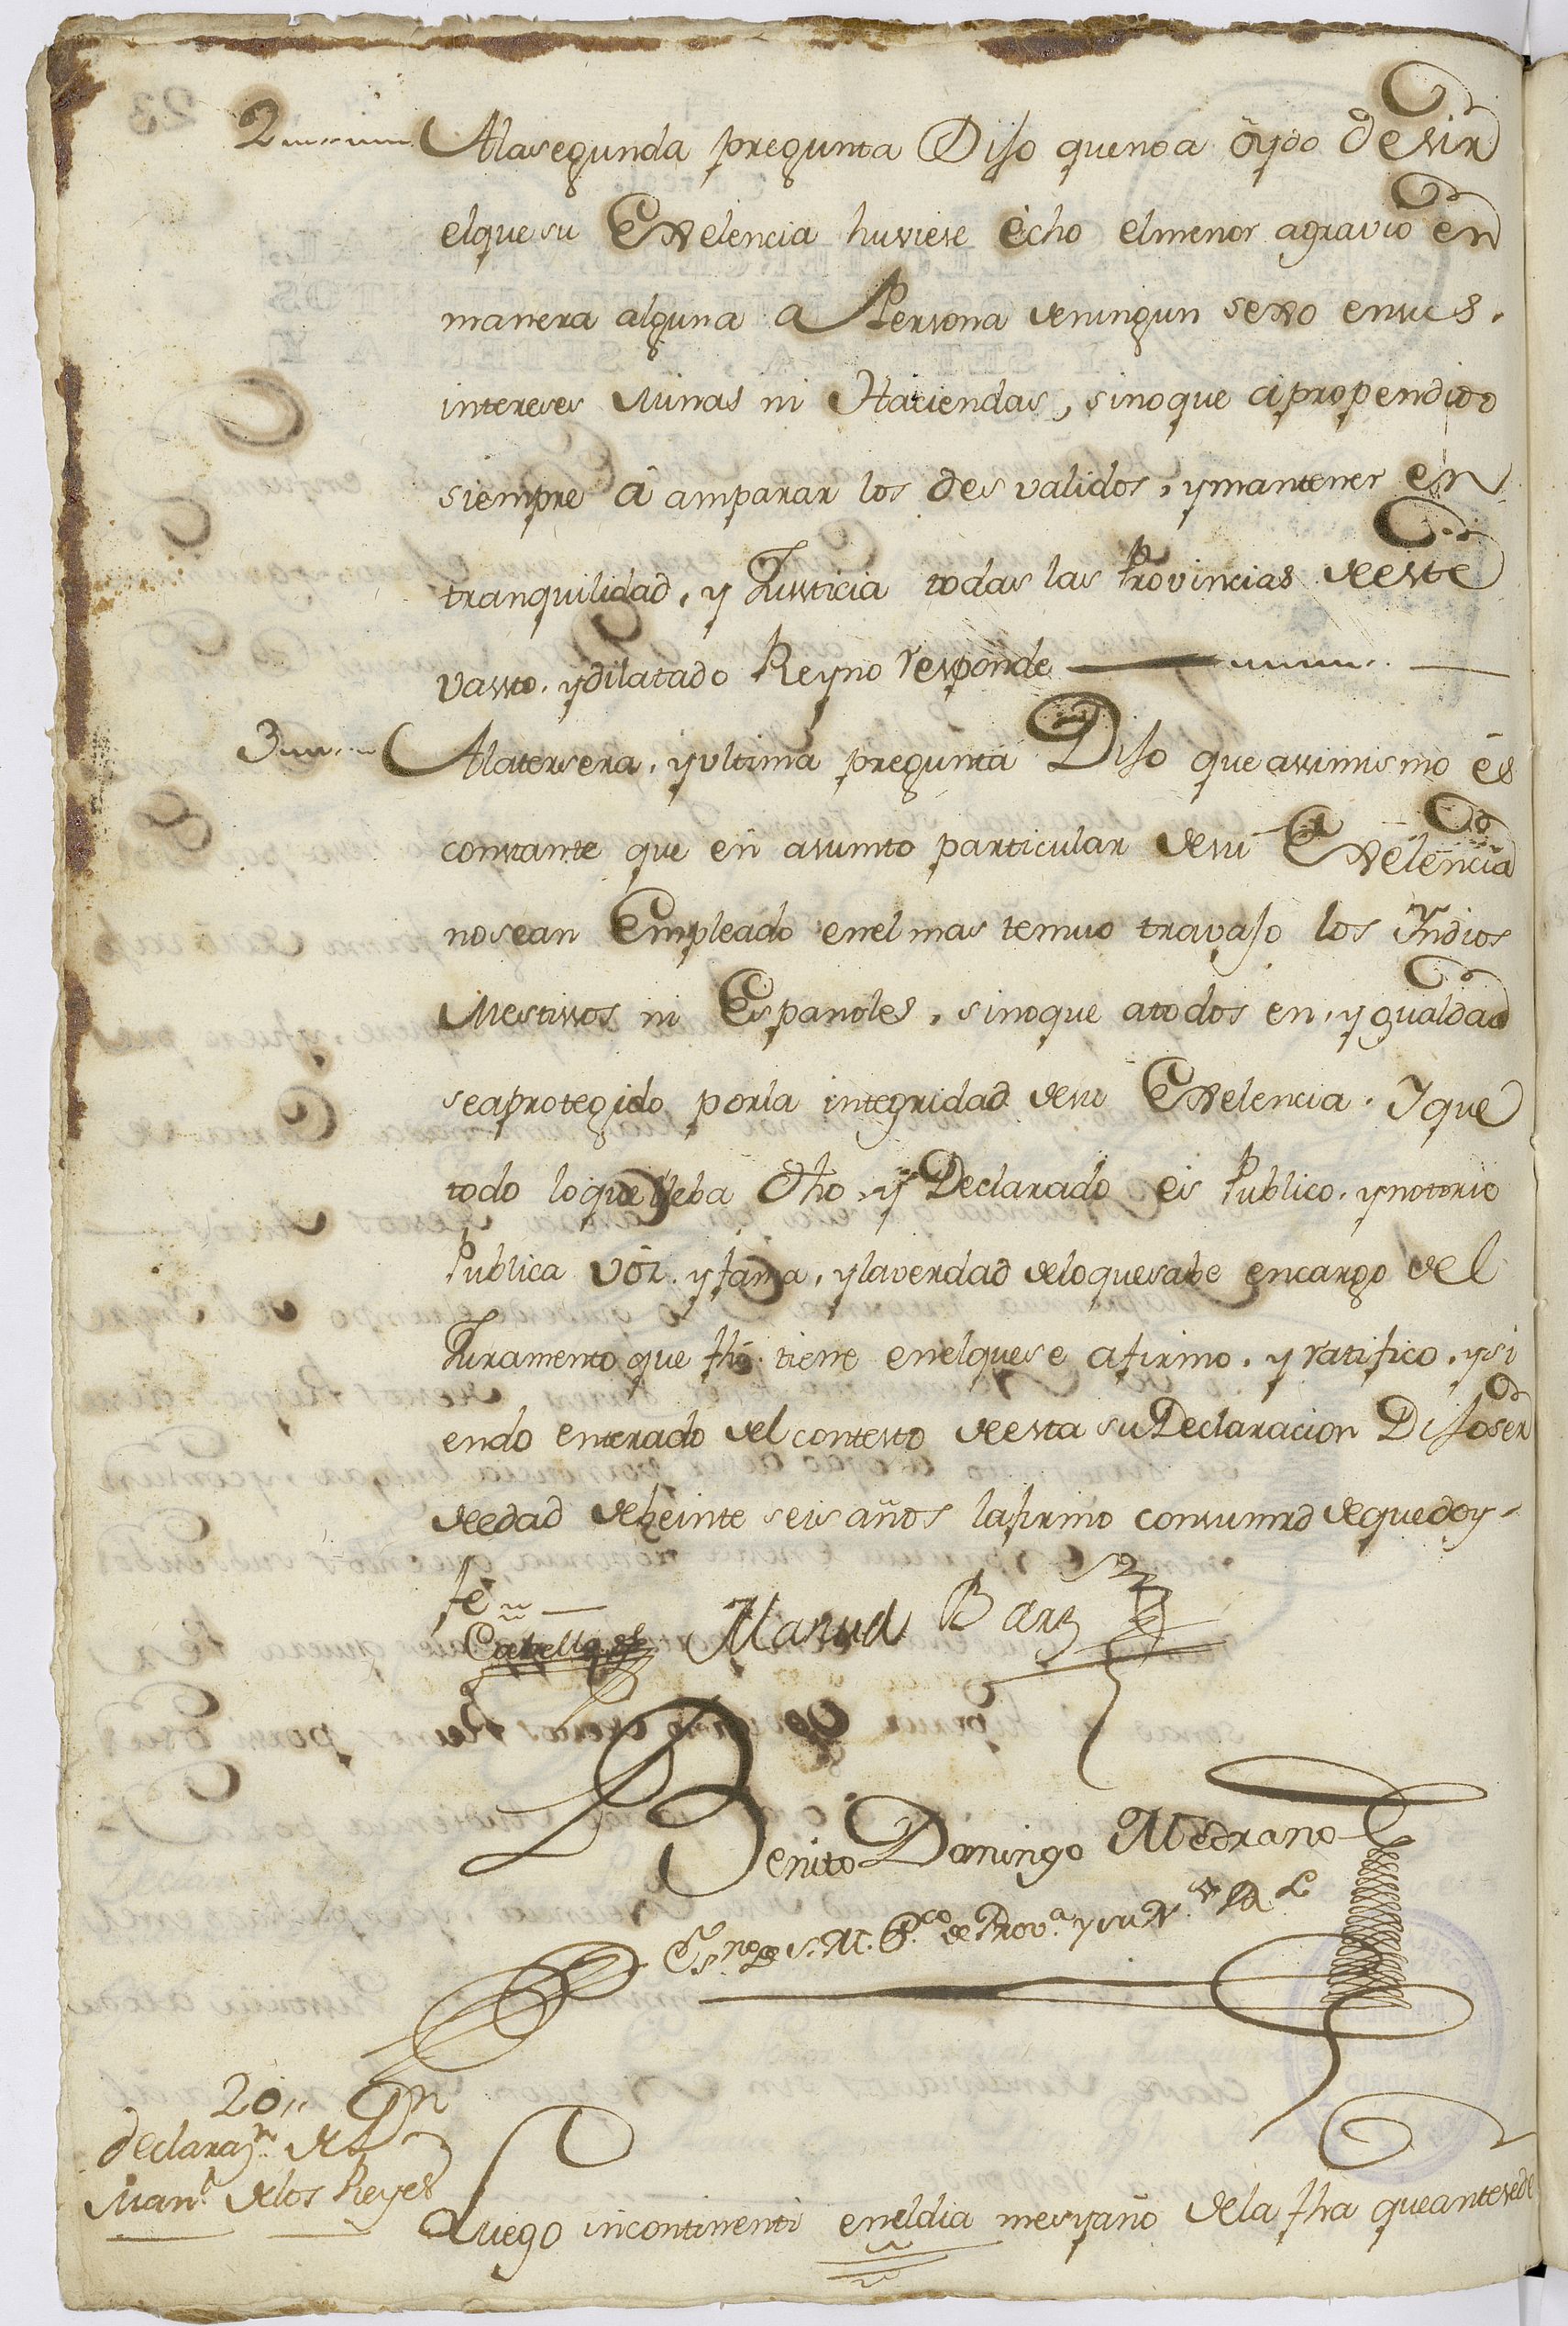 2 Alasegunda pregunta Dijo quenoa oydo Desir
elque su Exelencia huviese écho elmenor agravio en
manera alguna a Persona deningun sexo ensus.
intereses Minas ni Haciendas, sinoque apropendido
siempre â amparar los desvalidos, ymantener en
tranquilidad, y Justicia todas las Provincias deeste
vasto, ydilatado Reyno responde
3 Alatersera, yultima pregunta Dijo que assimismo és
constante que en asumto particular desu Exelencia
nosean Empleado enel mas tenuo travajo los Yndios
Mestissos ni Españoles, sinoque atodos en, ygualdad
seaprotegido porla integridad desu Exelencia. Yque
todo loque lleba dho, y Declarado es Publico, ynotorio
Publica vòz, yfama, ylaverdad deloquesabe encargo del
Juramento que fho tiene enelquese afirmo, y ratifico, ysi
endo enterado del contesto deesta su Declaracion Dijoser
deedad debeinte seis años lafirmo consumrd dequedoy
fé
Cabello Manuel
Benito Domingo Medrano
Esno. de S.M. Pco. de Prova. y su Rl.
20,, On
declaran. de
Manl. delos Reyes
Luego incontinenti eneldia mesyaño dela fha queantesede